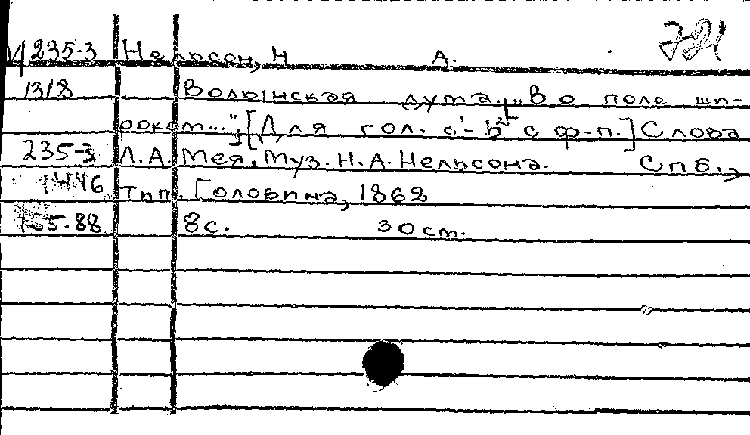 721
М 235-3 Нельсон, Н. А.
1318 Волынская дума. „Во поле ши-
роком..." [Для гол. c'-b² с ф-п.] Слова
235-3 Л. А. Мея. Муз. Н. А. Нельсона. Спб.,
1446 тип. Головина, 1868
5-88 8с. 30ст.